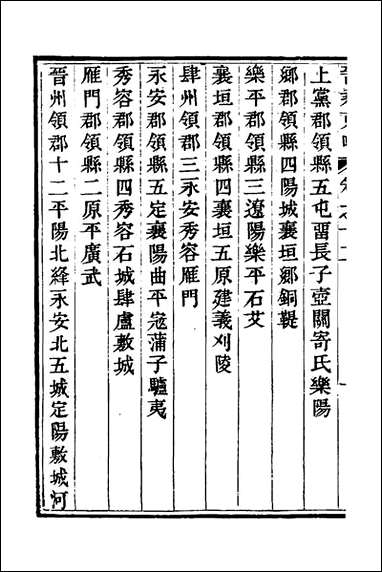 上黨郡領縣五屯留長子壺關寄氏樂陽
鄉郡領縣四陽城襄垣鄉銅鞮
樂平郡領縣三遼陽樂平石艾
襄垣郡領縣四襄垣五原建義刈陵
肆州領郡三永安秀容雁門
永安郡領縣五定襄陽曲平寇蒲子驢夷
秀容郡領縣四秀容石城肆盧敷城
雁門郡領縣二原平廣武
晉州領郡十二平陽北絳永安北五城定陽敷城河